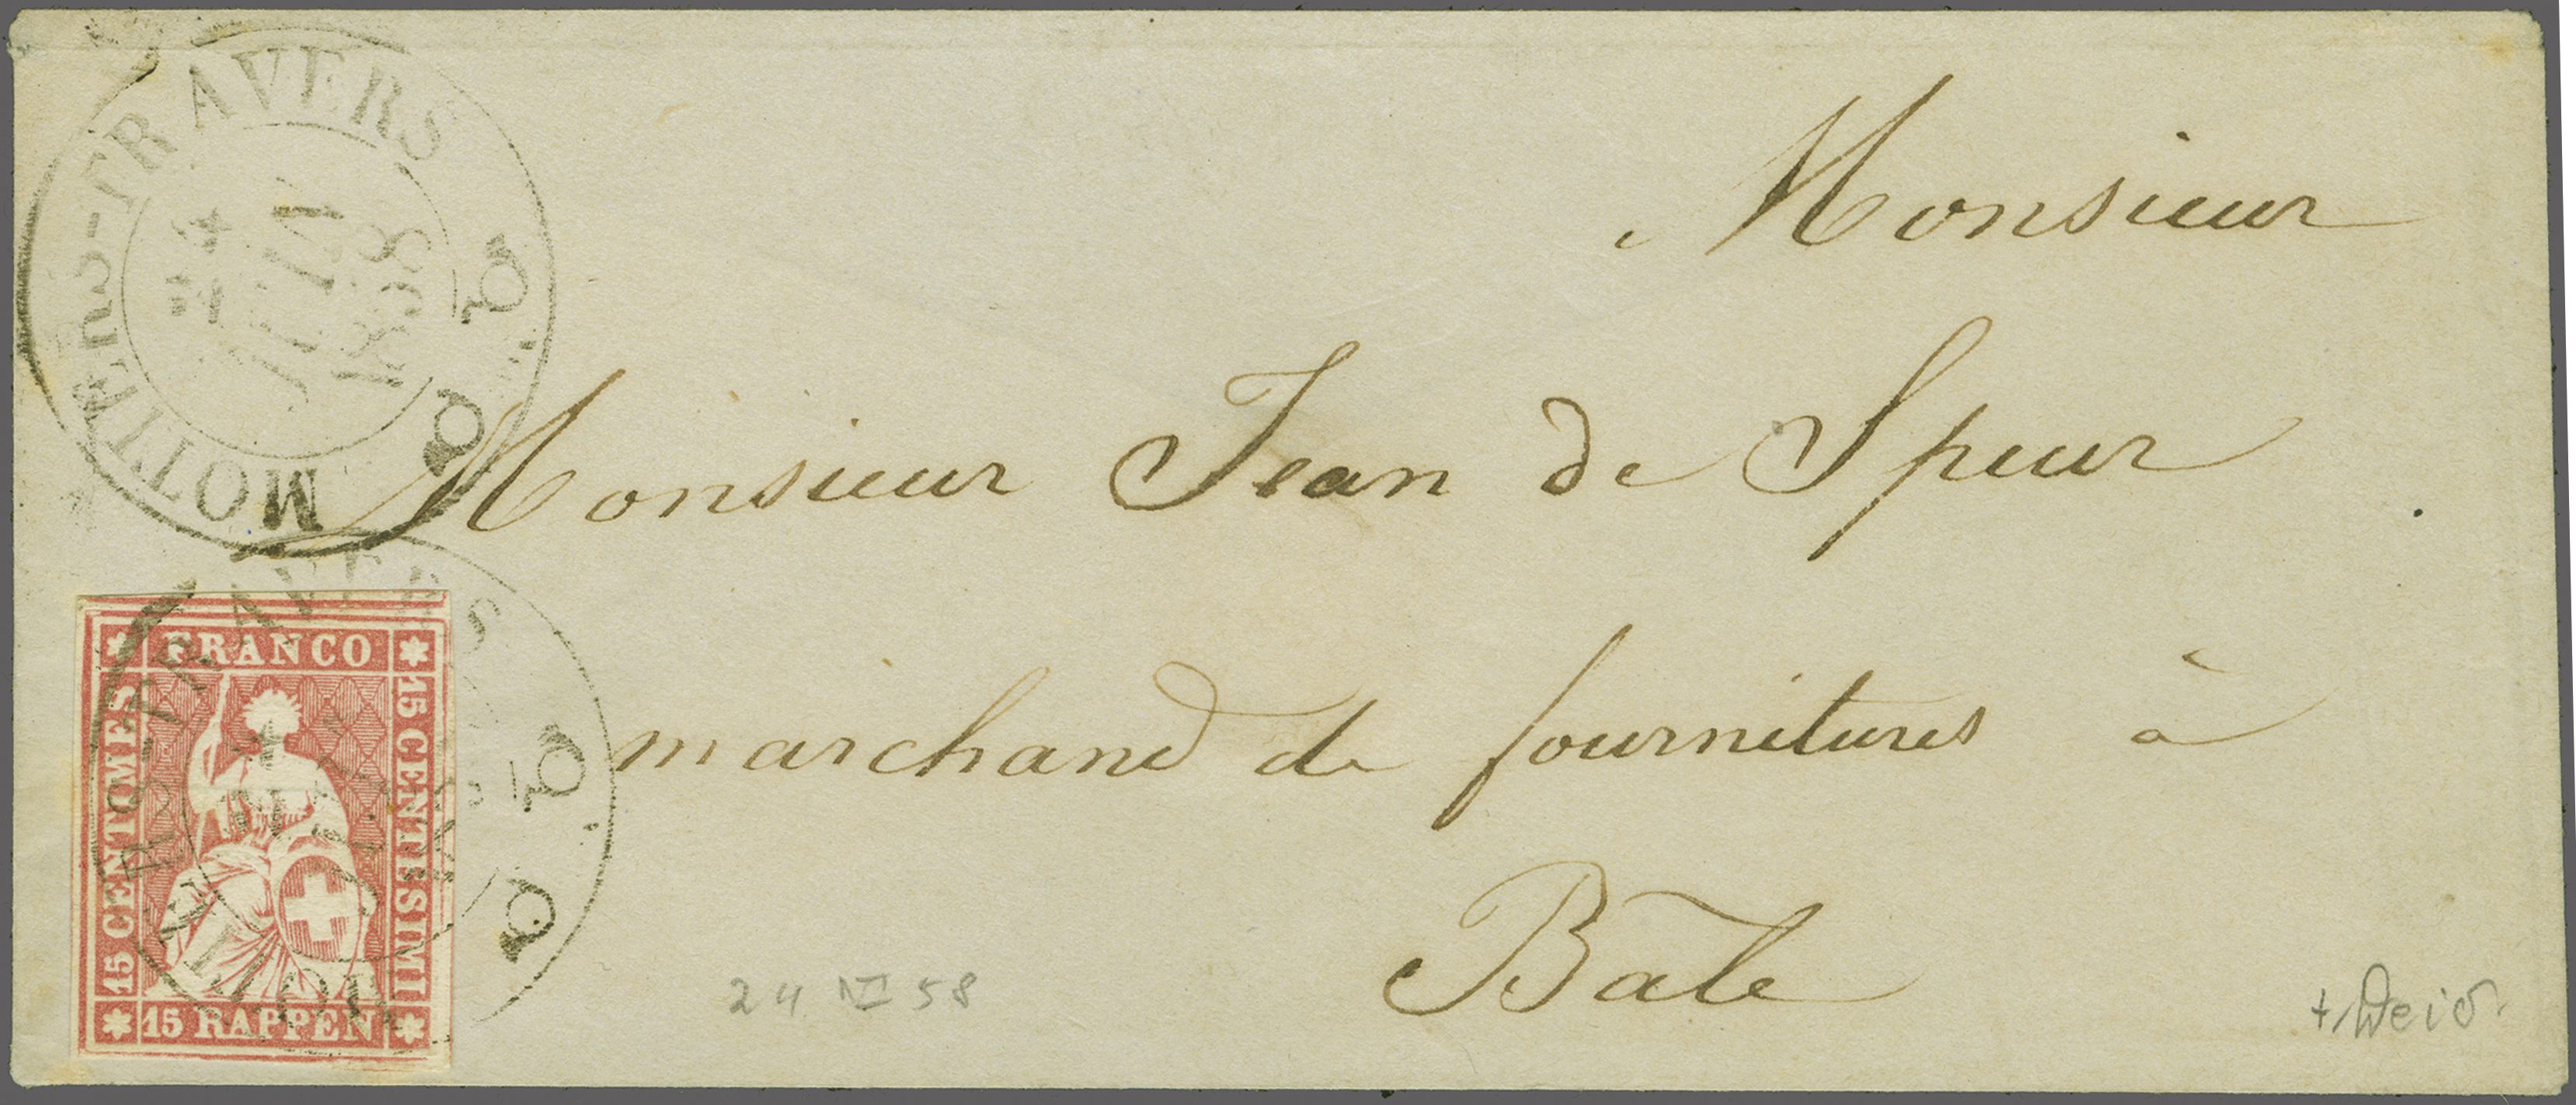 MOTIERS-TRAVERS
24
JUIN
1858
Monsieur
Monsieur Jean de Speur
marchand de fournitures à
Bâle
FRANCO
15 CENTIMES
15 CENTESIMI
15 RAPPEN
24 VI 58